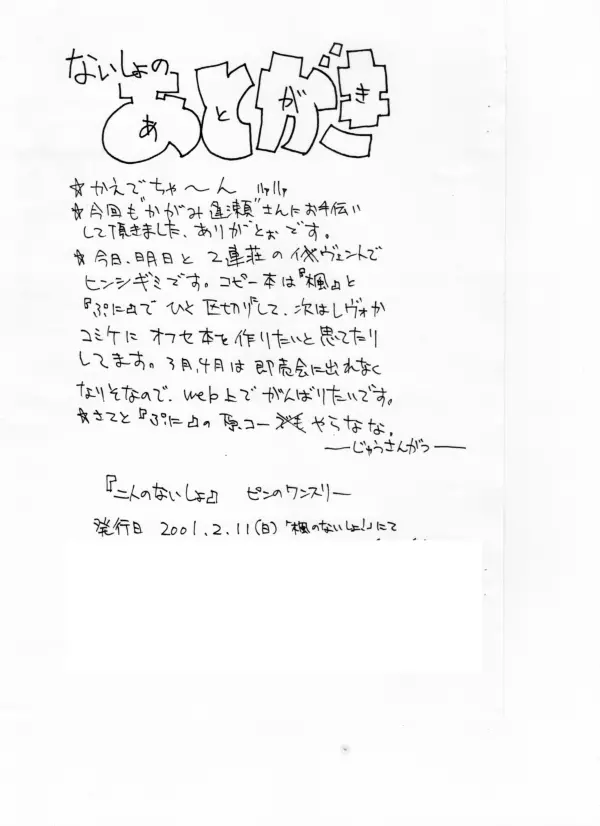 ないしょの
あとがき
☆かえでちゃ〜ん
☆今回も"かがみ逢瀬"さんにお手伝い
して頂きました、ありがとぉです。
☆今日、明日と2連荘のイヴェントで
ヒンシギミです。コピー本は『楓』と
『ぷに』でひと区切りして、次はレヴォか
コミケにオフセ本を作りたいと思てたり
してます。3月,4月は即売会に出れなく
なりそなので、web上でがんばりたいです。
☆さてと『ぷに』の原コーもやらなな。
—じゅうさんがつ—
『二人のないしょ』 ピンのワンスリー
発行日 2001.2.11(日)「楓のないしょ!」にて